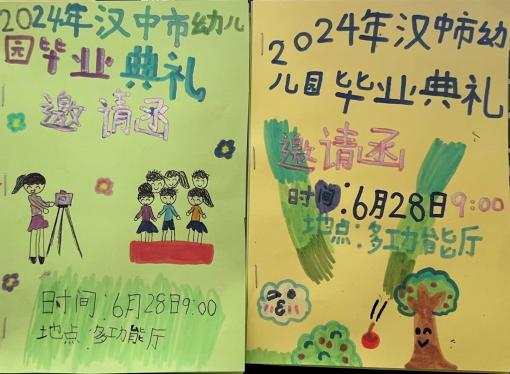 2024年汉中市幼儿
园毕业典礼
邀请函
时间:6月28日9:00
地点:多功能厅
2024年汉中市幼
儿园毕业典礼
邀请函
时间:6月28日9:00
地点:多功能厅